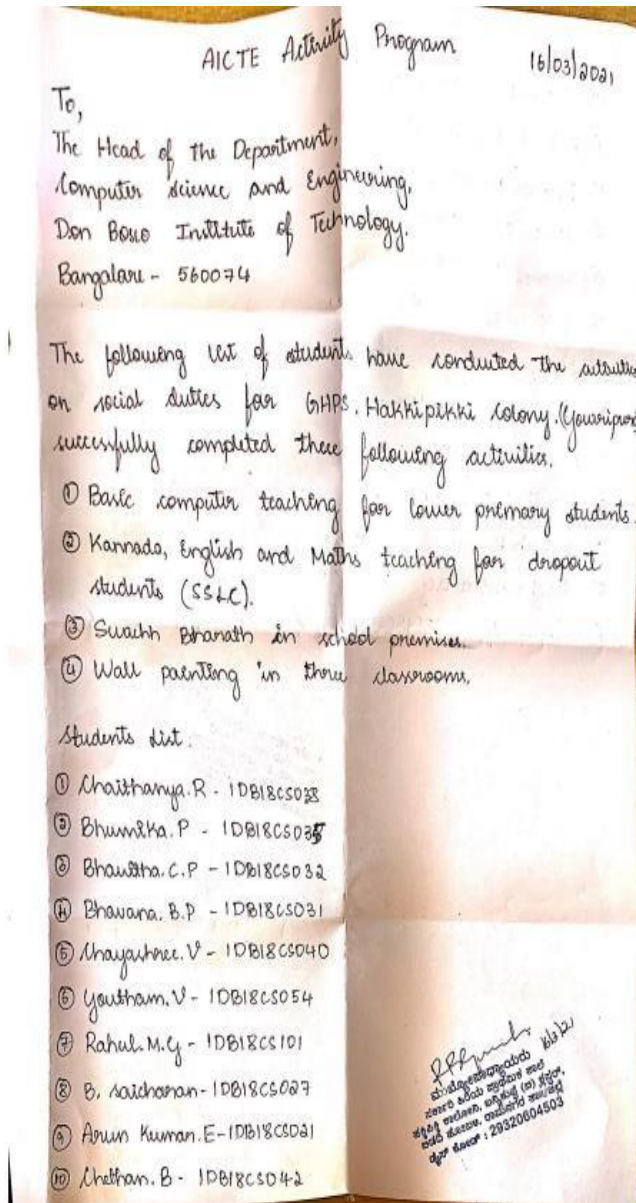 AICTE Activity Program
16/03/2021
To,
The Head of the Department,
Computer science and Engineering,
Don Bosco Institute of Technology.
Bangalore - 560074
The following list of students have conducted the activities
on social duties for GHPS. Hakkipikki colony.(Gowripura)
successfully completed these following activities.
① Basic computer teaching for lower primary students.
② Kannada, English and Maths teaching for dropout
students (SSLC).
③ Swachh Bharath in school premises.
④ Wall painting in three classrooms.
Students List.
① Chaithanya.R - 1DB18CS038
② Bhumika.P - 1DB18CS035
③ Bhavitha.C.P - 1DB18CS032
④ Bhavana.B.P - 1DB18CS031
⑤ Chayashree.V - 1DB18CS040
⑥ Goutham.V - 1DB18CS054
⑦ Rahul.M.G - 1DB18CS101
⑧ B. Saicharan - 1DB18CS027
⑨ Arun Kumar.E - 1DB18CS021
⑩ Chethan.B - 1DB18CS042
16/3/21
ಮುಖ್ಯೋಪಾಧ್ಯಾಯರು
ಸರ್ಕಾರಿ ಹಿರಿಯ ಪ್ರಾಥಮಿಕ ಶಾಲೆ
ಹಕ್ಕಿಪಿಕ್ಕಿ ಕಾಲೋನಿ,
ಬಿಡದಿ ಹೋಬಳಿ, ರಾಮನಗರ ತಾಲ್ಲೂಕು
ಡೈಸ್ ಕೋಡ್ : 29320604503